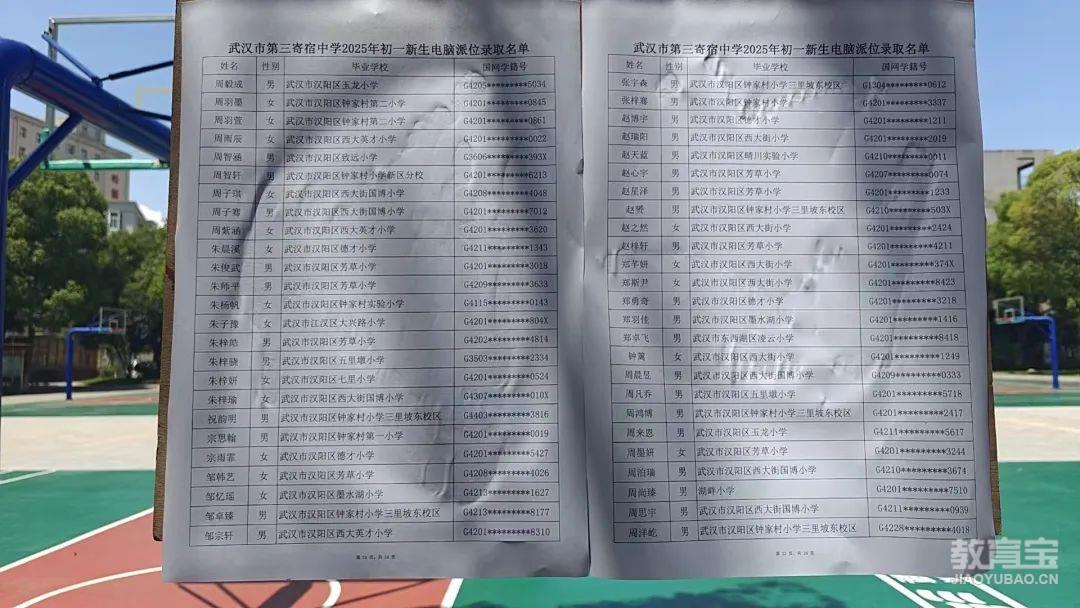 武汉市第三寄宿中学2025年初一新生电脑派位录取名单
姓名 性别 毕业学校 国网学籍号
周毅成 男 武汉市汉阳区玉龙小学 G4205*********5034
周羽墨 女 武汉市汉阳区钟家村第二小学 G4201*********0845
周羽萱 女 武汉市汉阳区钟家村第二小学 G4201*********0861
周雨辰 女 武汉市汉阳区西大英才小学 G4201*********0022
周智涵 男 武汉市汉阳区致远小学 G3606*********393X
周智轩 男 武汉市汉阳区钟家村小学新区分校 G4201*********6213
周子琪 女 武汉市汉阳区西大街国博小学 G4208*********4048
周子骞 男 武汉市汉阳区西大街国博小学 G4201*********7012
周紫涵 女 武汉市汉阳区西大英才小学 G4201*********3620
朱晨溪 女 武汉市汉阳区德才小学 G4211*********1343
朱俊武 男 武汉市汉阳区芳草小学 G4201*********3018
朱师平 男 武汉市汉阳区芳草小学 G4209*********3633
朱杨帆 女 武汉市汉阳区钟家村实验小学 G4115*********0143
朱子豫 女 武汉市江汉区大兴路小学 G4201*********804X
朱梓皓 男 武汉市汉阳区芳草小学 G4202*********4814
朱梓骁 男 武汉市汉阳区五里墩小学 G3503*********2334
朱梓妍 女 武汉市汉阳区七里小学 G4201*********0524
朱梓瑜 女 武汉市汉阳区西大街国博小学 G4307*********010X
祝韵明 男 武汉市汉阳区钟家村小学三里坡东校区 G4403*********3816
宗思翰 男 武汉市汉阳区钟家村第一小学 G4201*********0019
宗雨霏 女 武汉市汉阳区德才小学 G4201*********5427
邹韩艺 女 武汉市汉阳区芳草小学 G4208*********4026
邹忆瑶 女 武汉市汉阳区墨水湖小学 G4213*********1627
邹卓臻 男 武汉市汉阳区钟家村小学三里坡东校区 G4213*********8177
邹宗轩 男 武汉市汉阳区西大英才小学 G4201*********8310
武汉市第三寄宿中学2025年初一新生电脑派位录取名单
姓名 性别 毕业学校 国网学籍号
张宇森 男 武汉市汉阳区钟家村小学三里坡东校区 G1304*********0612
张梓骞 男 武汉市汉阳区钟家村小学 G4201*********3337
赵博宇 男 武汉市汉阳区德才小学 G4201*********1211
赵瑞阳 男 武汉市汉阳区西大街小学 G4201*********2019
赵天蓝 男 武汉市汉阳区晴川实验小学 G4210*********0011
赵心宇 男 武汉市汉阳区芳草小学 G4207*********0074
赵星泽 男 武汉市汉阳区芳草小学 G4201*********1233
赵赟 男 武汉市汉阳区钟家村小学三里坡东校区 G4210*********503X
赵之然 女 武汉市汉阳区西大街小学 G4201*********2424
赵梓轩 男 武汉市汉阳区芳草小学 G4201*********4211
郑芊妍 女 武汉市汉阳区西大街小学 G4201*********374X
郑斯尹 女 武汉市汉阳区西大街小学 G4201*********8423
郑勇奇 男 武汉市汉阳区德才小学 G4201*********3218
郑羽佳 男 武汉市汉阳区墨水湖小学 G4201*********1416
郑卓飞 男 武汉市东西湖区凌云小学 G4201*********8418
钟篱 女 武汉市汉阳区西大街小学 G4201*********1249
周晨昱 男 武汉市汉阳区西大街国博小学 G4209*********0333
周凡乔 男 武汉市汉阳区五里墩小学 G4201*********5718
周鸿博 男 武汉市汉阳区钟家村小学三里坡东校区 G4201*********2417
周来恩 男 武汉市汉阳区玉龙小学 G4211*********5617
周墨妍 女 武汉市汉阳区芳草小学 G4201*********3244
周泊瑞 男 武汉市汉阳区西大街国博小学 G4210*********3674
周尚臻 男 湖畔小学 G4201*********7510
周思宇 男 武汉市汉阳区西大街国博小学 G4211*********0939
周洋屹 男 武汉市汉阳区钟家村小学三里坡东校区 G4228*********4018
教育宝
JIAOYUBAO.CN